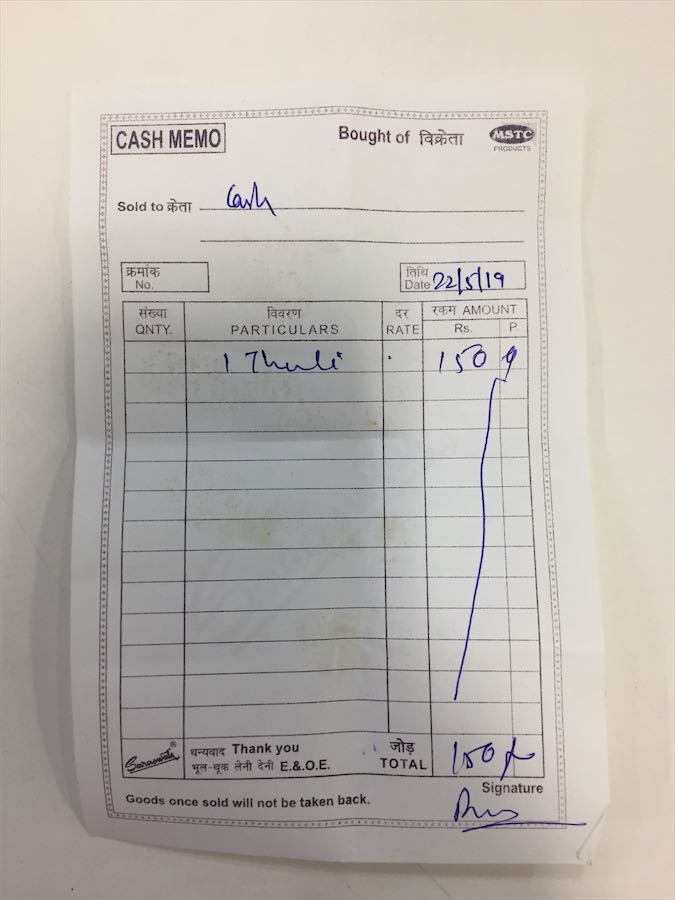 CASH MEMO
Bought of विक्रेता
MSTC
PRODUCTS
Sold to क्रेता Cash
क्रमांक
No.
तिथि
Date 22/5/19
संख्या विवरण दर रकम AMOUNT
QNTY. PARTICULARS RATE Rs. P.
1 Thali 150
Saraswati ® धन्यवाद Thank you जोड़
भूल-चूक लेनी देनी E.&O.E. TOTAL 150
Signature
Goods once sold will not be taken back.